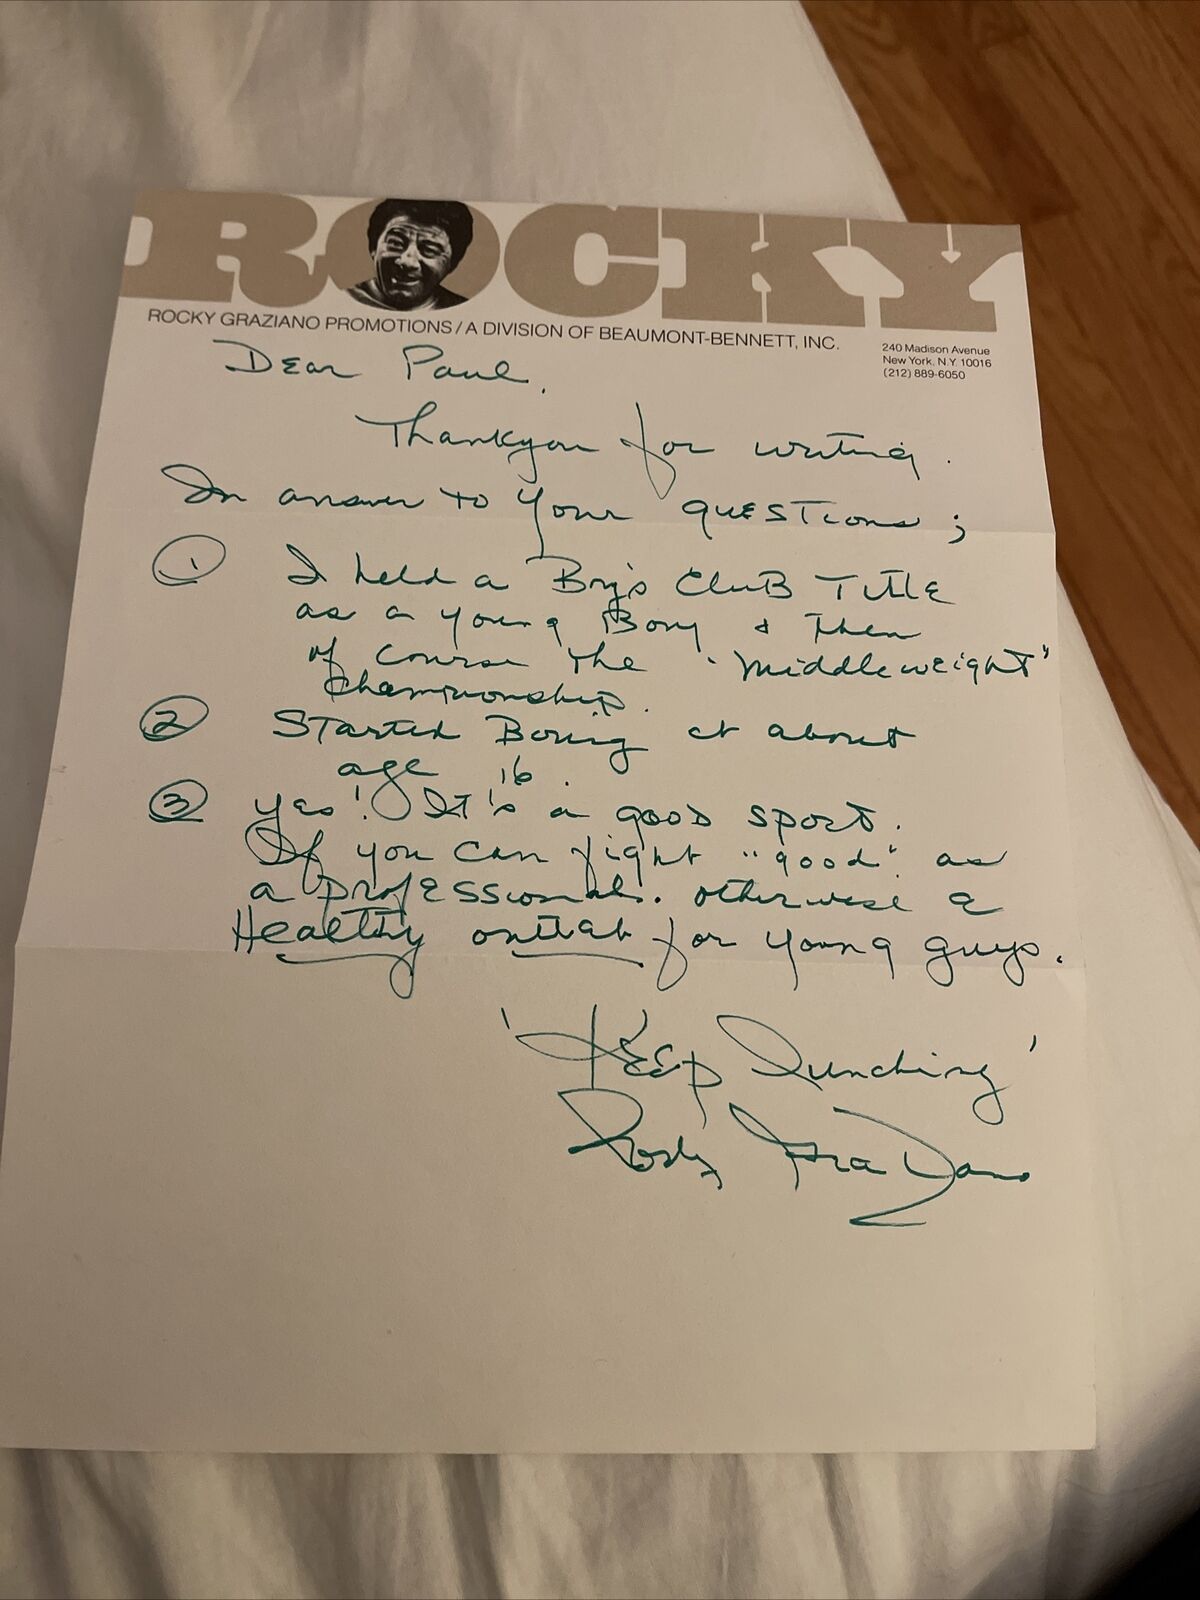 ROCKY
ROCKY GRAZIANO PROMOTIONS / A DIVISION OF BEAUMONT-BENNETT, INC.
240 Madison Avenue
New York, N.Y. 10016
(212) 889-6050
Dear Paul,
Thankyou for writing.
In answer to your questions;
1 I held a Boy's Club Title
as a young Boy & then
of course the "middleweight"
championship.
2 Started Boxing at about
age 16.
3 Yes! It's a good sport.
If you can fight "good" as
a professional. otherwise a
Healthy outlet for young guys.
'Keep Punching'
Rocky Graziano